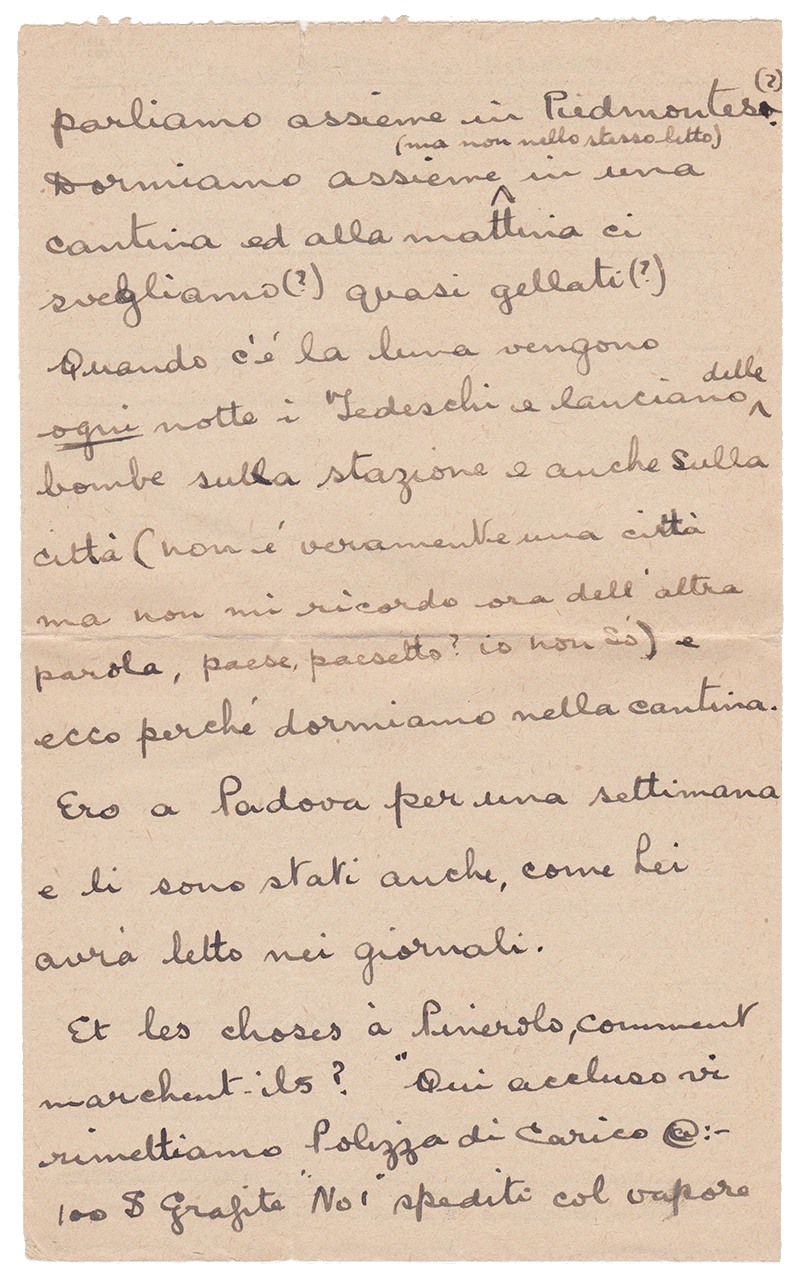 parliamo assieme in Piedmontese. (?)
(ma non nello stesso letto)
Dormiamo assieme ^ in una
cantina ed alla mattina ci
svegliamo (?) quasi gellati (?)
Quando c'é la luna vengono
ogni notte i Tedeschi e lanciano ^ delle
bombe sulla stazione e anche sulla
città (non é veramente una città
ma non mi ricordo ora dell'altra
parola, paese, paesetto? io non só) e
ecco perché dormiamo nella cantina.
Ero a Padova per una settimana
e li sono stati anche, come Lei
avrá letto nei giornali.
Et les choses à Pinerolo, comment
marchent-ils? "Qui accluso vi
rimettiamo Polizza di Carico @:-
100 S Grafite "No 1" spediti col vapore